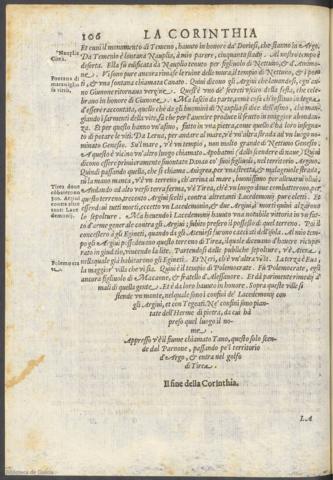 106 LA CORINTHIA
Et euui il monumento di Temeno, hauuto in honore da' Doriesi, che stanno in Argo.
Nauplia Città.
Da Temenio è lontana Nauplia, à mio parere, cinquanta stadij. Al nostro tempo è
deserta. Ella fù edificata da Nauplio tenuto per figliuolo di Nettuno, & d'Amimo-
ne. Visono pure ancora rimase le ruine delle mura, il tempio di Nettuno, & i por-
Fontana di marauigliosa virtù.
ti, & vna fontana chiamata Canato. Quiui dicono gli Argiui che lauandosi, ogn'an-
no Giunone ritornaua vergine. Questi è vno de' secreti
celebrano in honore di Giunone. Ma
d'essere raccontato, quello che da gli huomini di Nauplia si dice dell'asino, che man-
giando i sarmenti della vite,
za. Et per questo hanno vn'asino, fatto in vna pietra,
re di potare le viti. Da Lerna, per andare al mare, v'è vn'altra strada ad vn luogo no-
minato Genesio. Sul mare, v'è vn tempio, non molto grande di Nettuno Genesio.
A questo è vicino vn'altro luogo chiamato Apobatmi (dallo scendere di naue) Quiui
dicono essere primieramente smontato Danao co' suoi figliuoli, nel territorio d'Argo.
Quindi passando quella, che si chiama Anigrea, per vna stretta, & malageuole strada,
v'è in mano manca, vn terreno, ch'arriua al mare, buonissimo per alleuarui vliui.
Tirea doue combatterono 300. Argiui contra altretanti Lacedemonij.
Andando ad alto verso terra ferma, v'è Tirea, ch'è vn luogo doue combatterono per
questo terreno, trecento Argiui scelti, contra altretanti Lacedemonij pure eletti. Et
essendoui tutti morti, eccetto vn Lacedemonio, & due Argiui, à morti quiui alzarono
le sepolture. Ma hauendo i Lacedemonij hauuto vna notabile vittoria in vn fat-
to d'arme generale contra gli Argiui, subito presero il possesso di quel terreno. Poi il
concessero à gli Egineti, quando da gli Ateniesi furono cacciati dell'isola. Al mio tem-
po gli Argiui possedeuano questo terreno di Tirea, il quale dicono d'hauere ricupe-
rato in giuditio, vincendo la lite. Partendosi dalle publiche sepolture, v'è Atena,
nella quale già habitarono gli Egineti. Et Neri, ch'è vn'altra villa. La terza è Eua,
Polemocrate.
la maggior villa che vi sia. Quiui è il tempio di Polemocrate. Fù Polemocrate, egli
ancora figliuolo di Macaone, & fratello d'Alessanore. Et dà parimente rimedij a'
mali di quella gente. Et è da loro hauuto in honore. Sopra queste ville si
stende vn monte, nel quale sono i confini de' Lacedemonij con
gli Argiui, et con Tegeati. Ne' confini sono pian-
tate dell'Herme di pietra, da cui hà
preso quel luogo il no-
me.
Appresso v'è il fiume chiamato Tano, questo solo scen-
de dal Parnone, passando pe'l territorio
d'Argo, & entra nel golfo
di Tirea.
Il fine della Corinthia.
LA
Biblioteca de Galicia